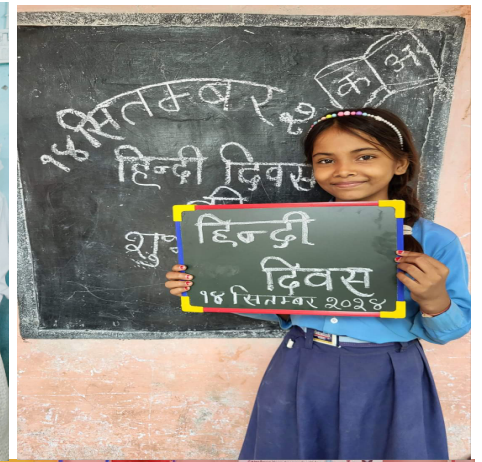 क अ
१४ सितम्बर २
हिन्दी दिवस
की
हिन्दी
दिवस
१४ सितम्बर २०२४